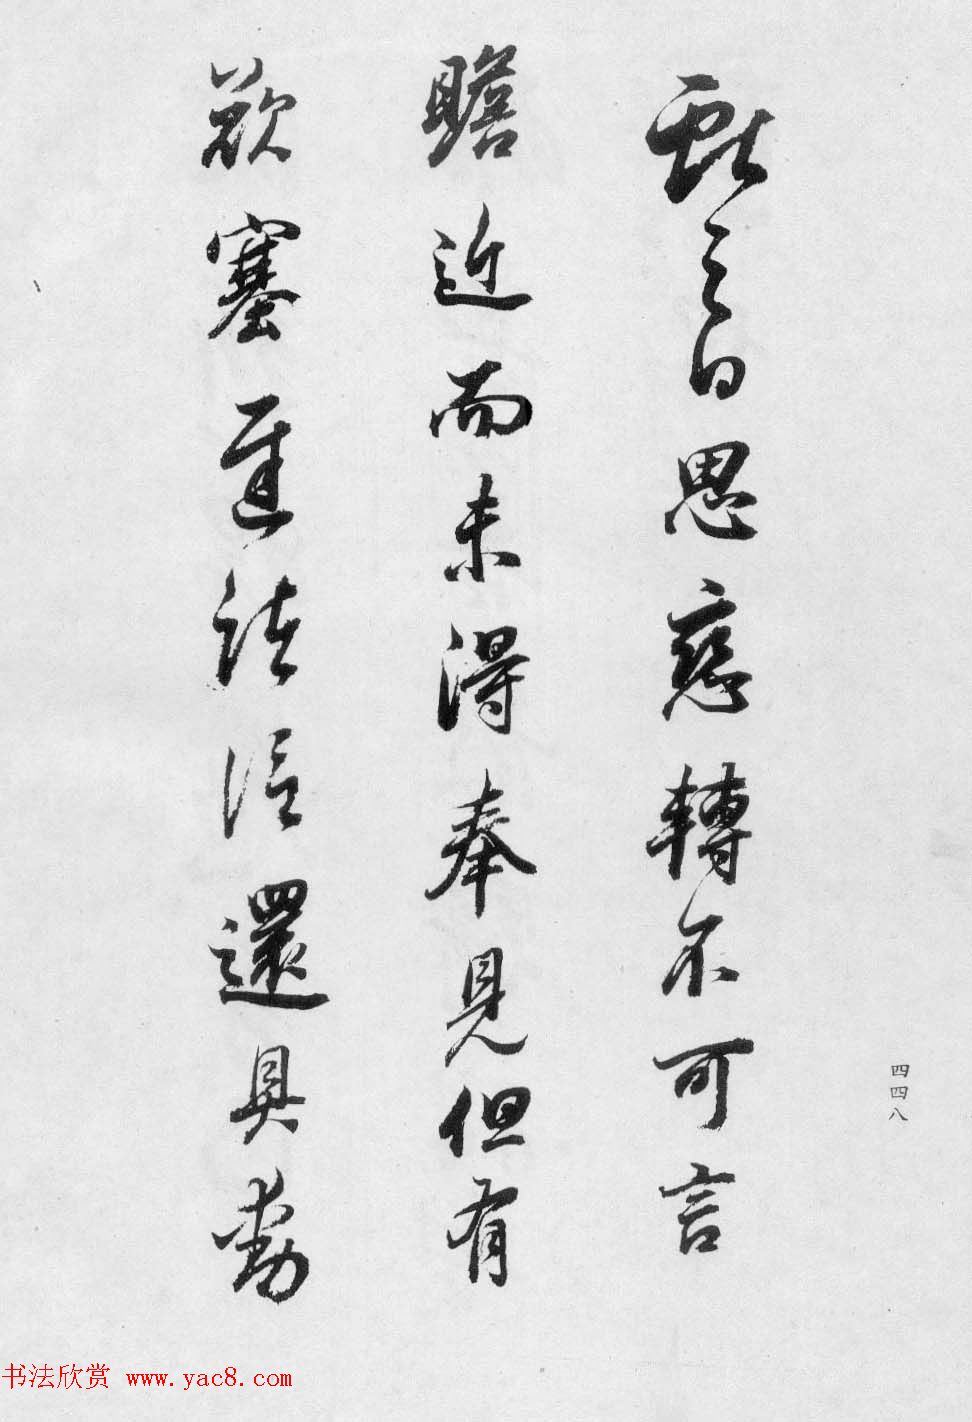 獻之白思戀轉不可言
瞻近而未得奉見但有
歎塞遲諸信還具動
四四八
书法欣赏 www.yac8.com